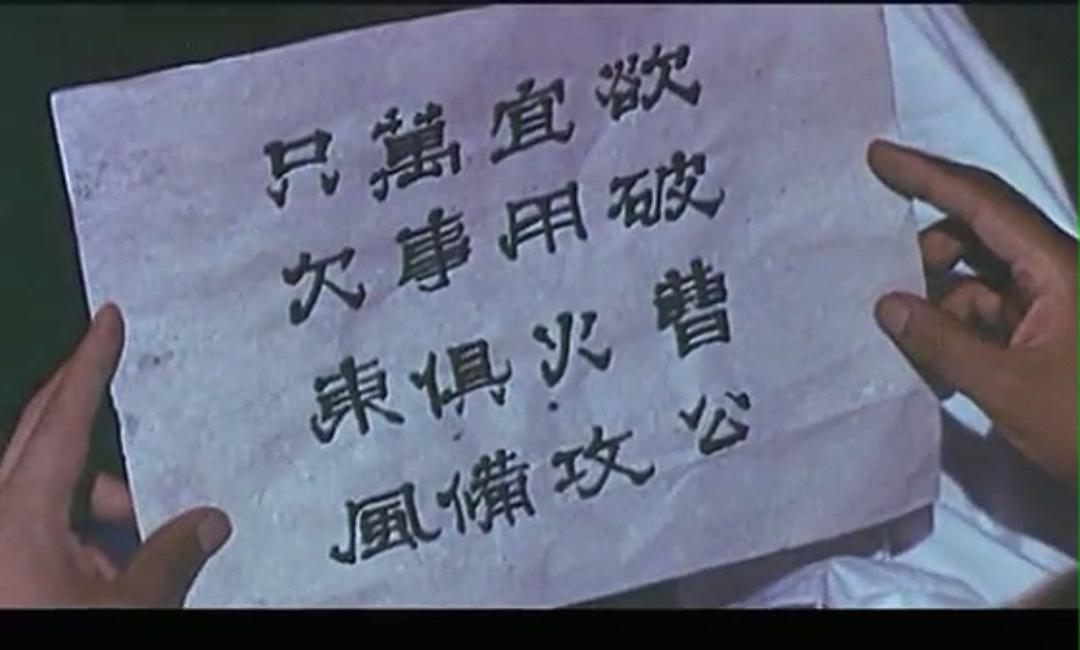 欲破曹公
宜用火攻
萬事俱備
只欠東風